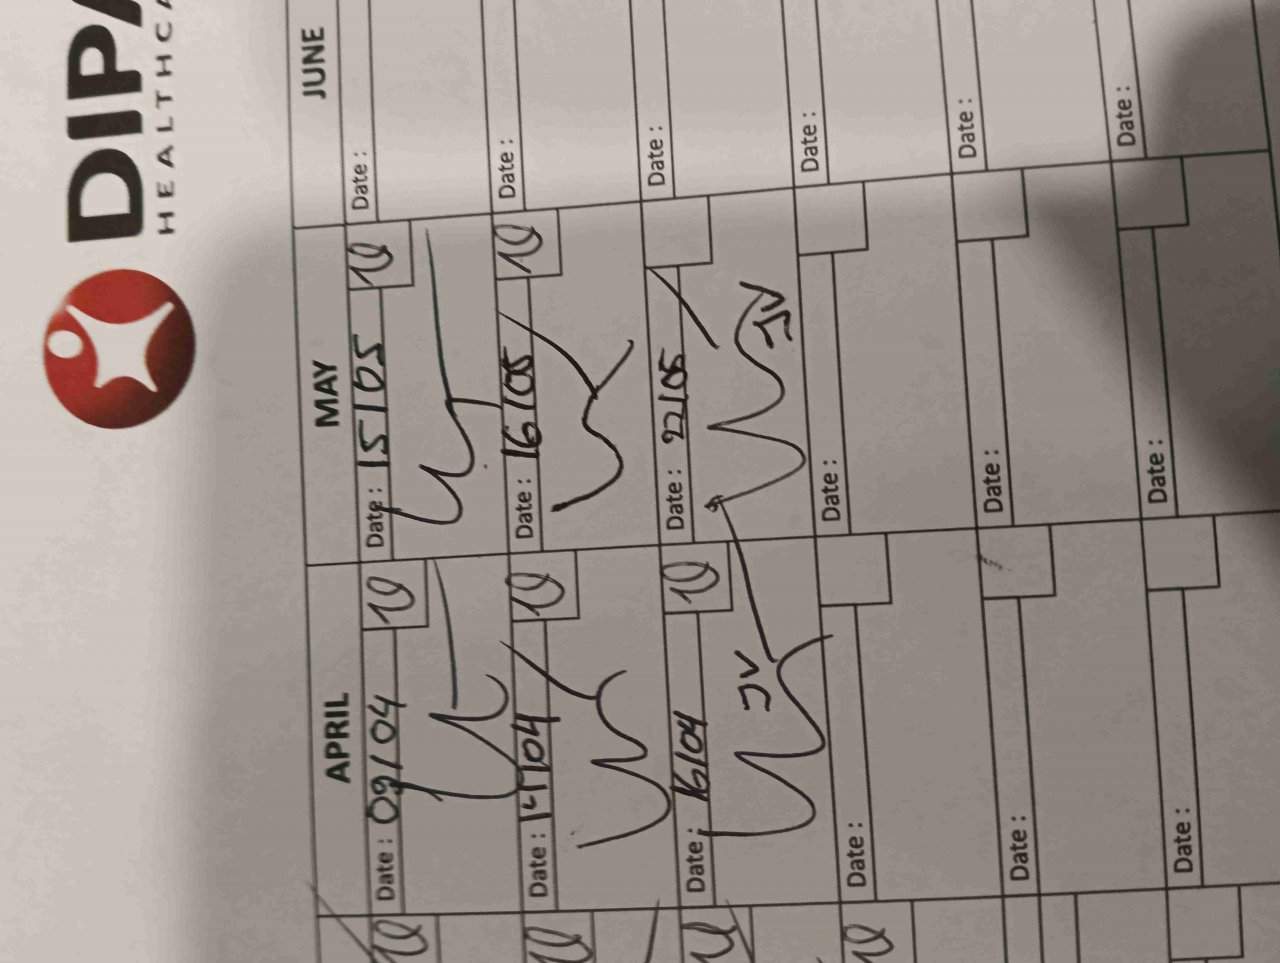 DIPA
HEALTHCA
APRIL MAY JUNE
Date : 09/04 Date : 15/05 Date :
Date : 14/04 Date : 16/05 Date :
Date : 16/04 Date : 22/05 Date :
JV JV
Date : Date : Date :
Date : Date : Date :
Date : Date : Date :